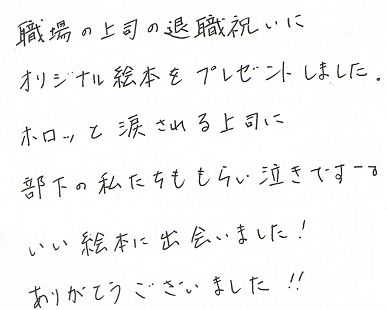 職場の上司の退職祝いに
オリジナル絵本をプレゼントしました.
ホロッと涙される上司に
部下の私たちももらい泣きですーー。
いい絵本に出会いました!
ありがとうございました!!